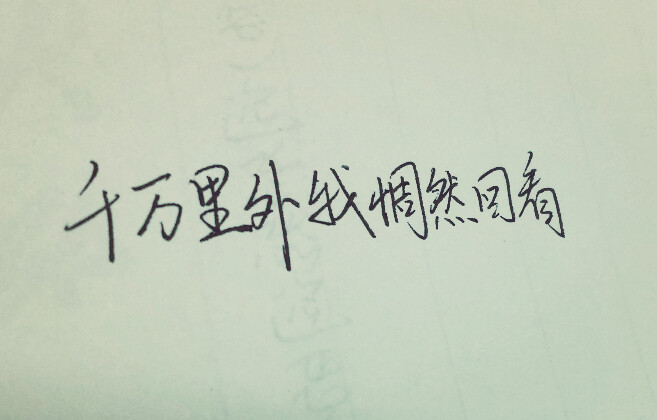 千万里外我惆然回看